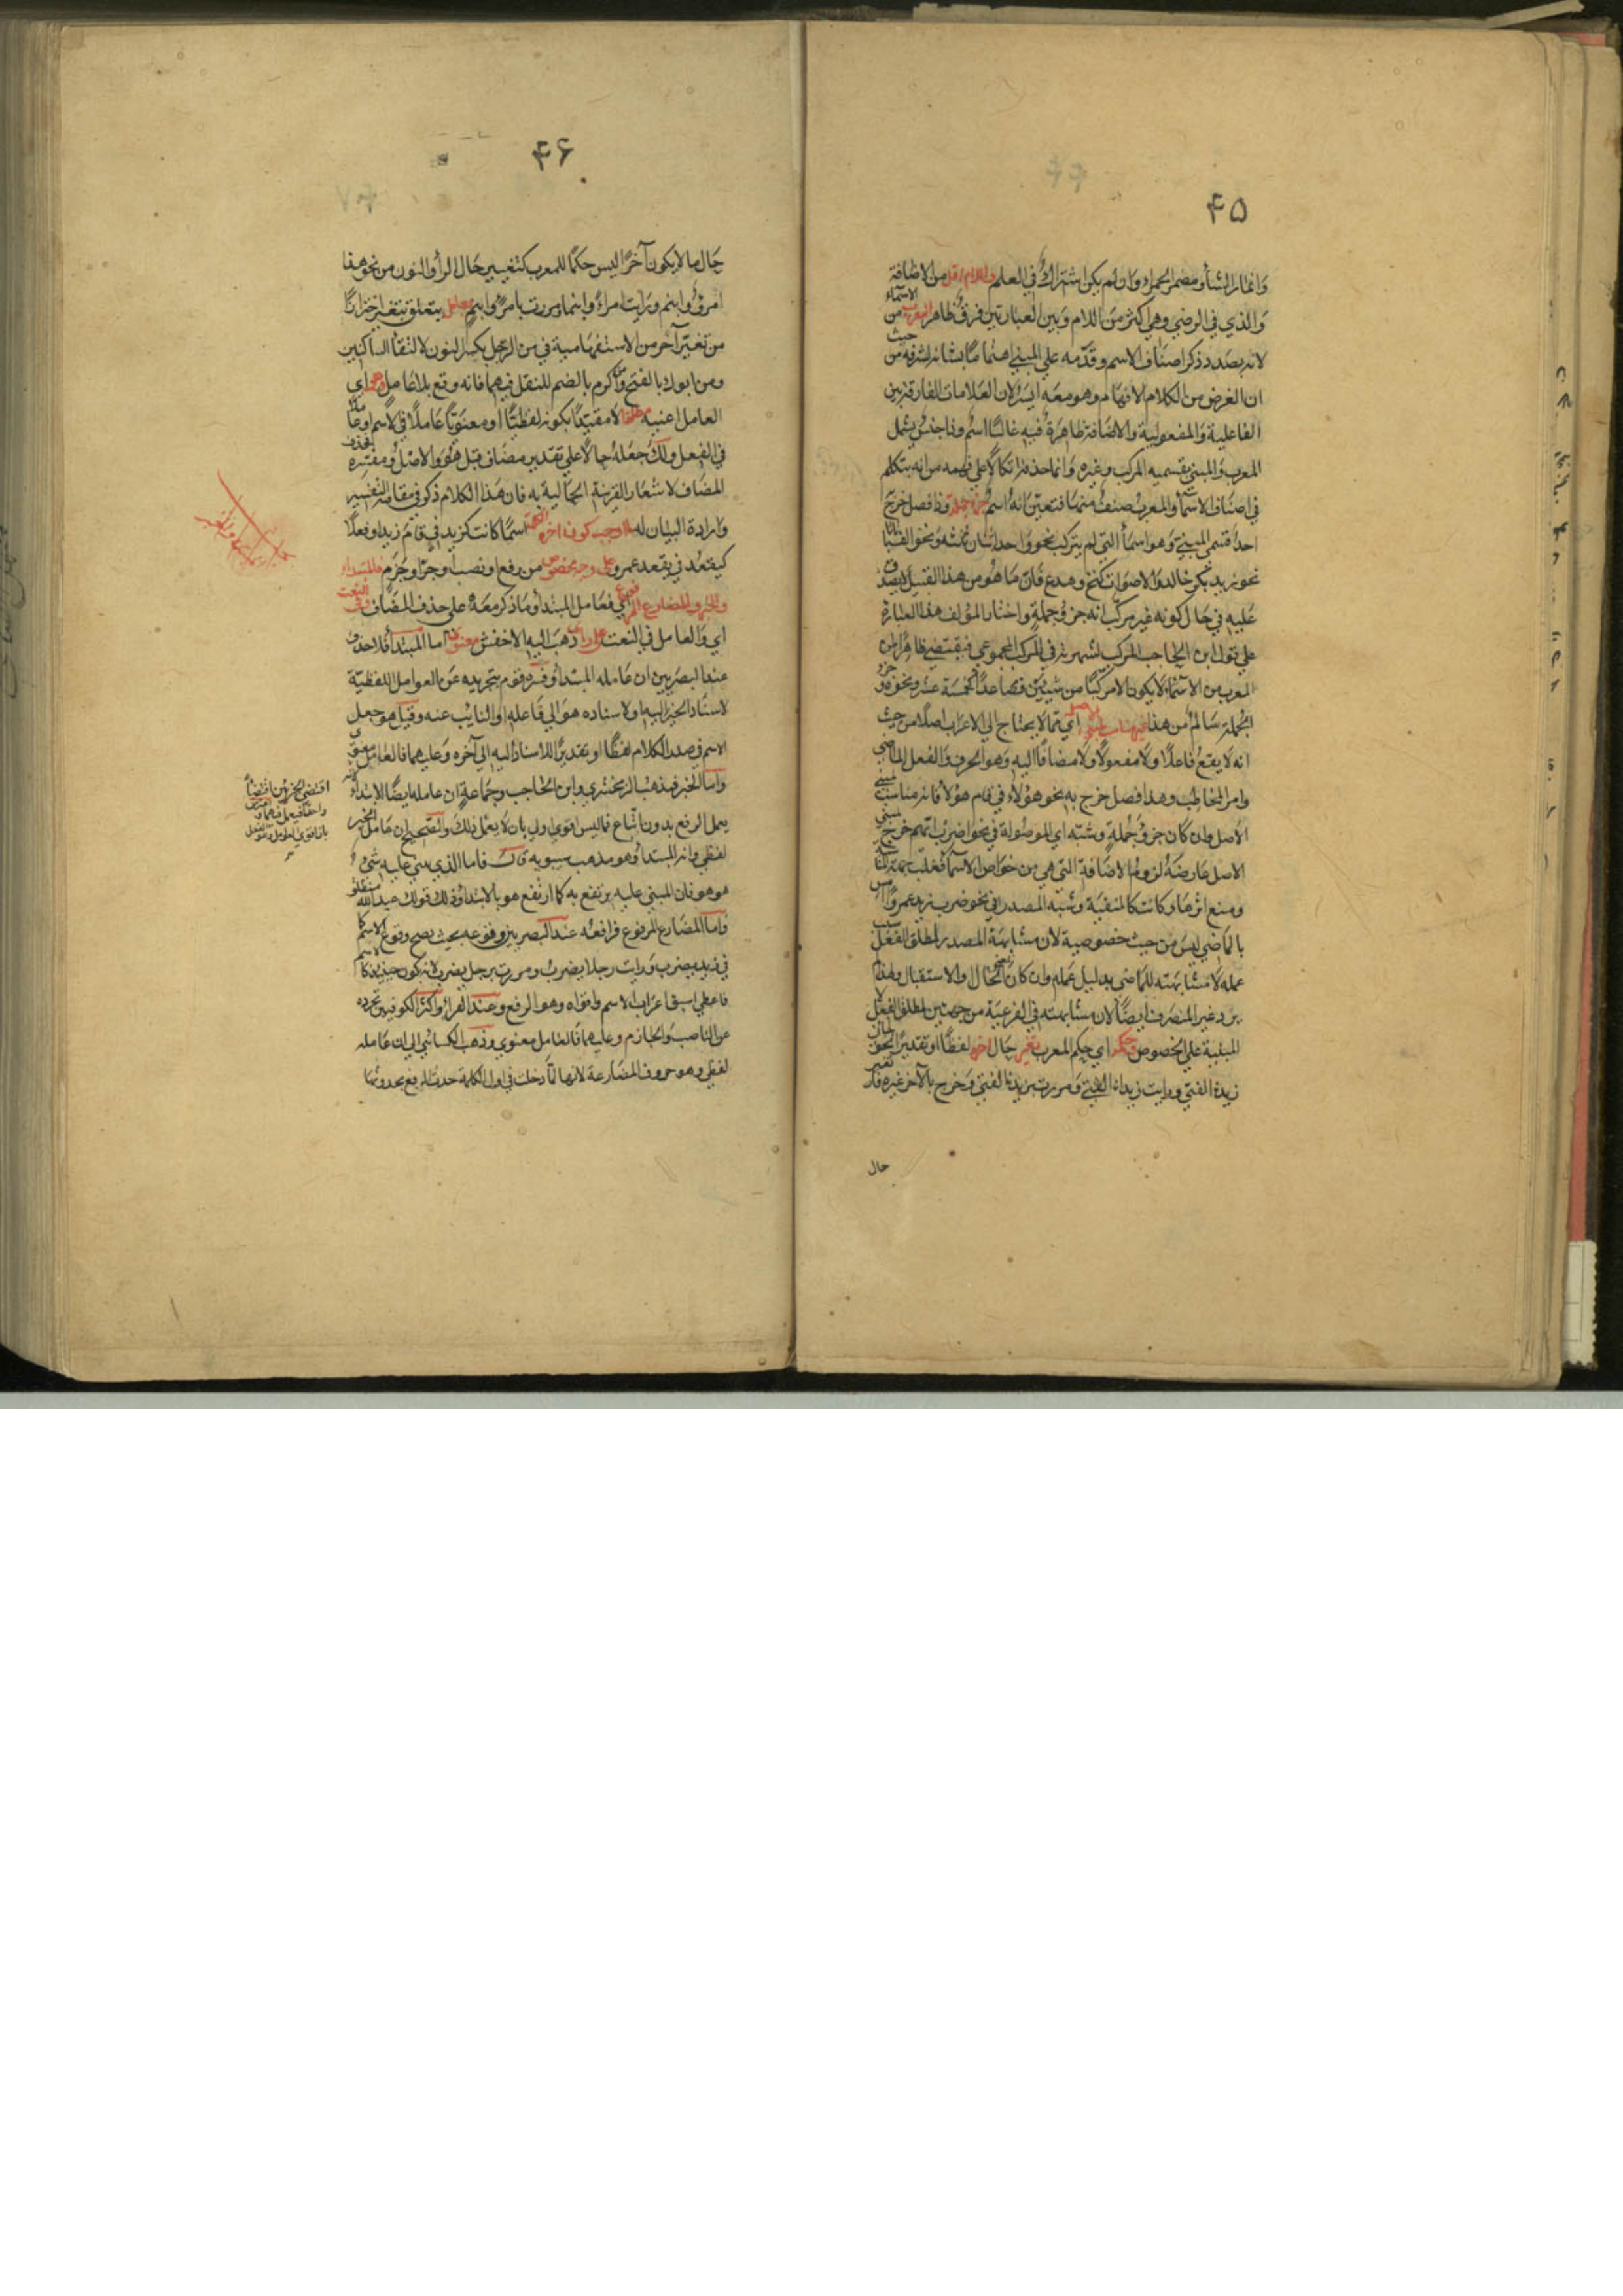 ۴۵
وانمار الشأو مضمر الحمراء وان لم يكن اشتراك في العلم واللام اقل من الاضافة
والذي في الرضي وهي اكثر من اللام وبين العبارتين فرق ظاهر المعرب من الاسماء
لانه بصدد ذكر اصناف الاسم وقدمه علي المبني اهتماما بشانه لشرفه من حيث
ان الغرض من الكلام الافهام وهو معه ايسر لان العلامات الفارقة بين
الفاعلية والمفعولية والاضافة ظاهرة فيه غالبا اسم وذا جنس يشمل
المعرب والمبني بقسميه المركب وغيره وانما حذفه اتكالا علي فهمه من انه يتكلم
في اصناف الاسماء والمعرب صنف منها فتعين انه اسم جزء جملة وذا فصل خرج
احد قسمي المبني وهو اسماء التي لم يتركب نحو واحد اثنان ثلثه ونحو الف با تا
نحو زيد بكر خالد والاصوات كنخ وهدع فان ما هو من هذا القبيل لا يصدق
عليه في حال كونه غير مركب انه جزء جملة واختار المؤلف هذا العبارة
علي قول ابن الحاجب المركب لشهرته في المركب المجموعي فيقتضي ظاهرا ان
المعرب من الاسماء لا يكون الا مركبا من شيئين فصاعدا كخمسة عشر ونحوه وجزء
الجملة سالم من هذا غير مناسب مبني الاصل اي مما لا يحتاج الي الاعراب اصلا من حيث
انه لا يقع فاعلا ولا مفعولا ولا مضافا اليه وهو الحرف والفعل الماضي
وامر المخاطب وهذا فصل خرج به نحو هؤلاء في قام هؤلا فانه مناسب مبني
الاصل وان كان جزء جملة وشبه اي الموصولة في نحو اضرب ايهم خرج مبني
الاصل عارضة لزوم الاضافة التي هي من خواص الاسما فغلب جهة
ومنع اثرها وكانت كالمنفية وشبه المصدر في نحو ضرب زيد عمروا امس
بالماضي ليس من حيث خصوصية لان مشابهة المصدر لمطلق الفعل سبب
عمله لا مشابهته للماضي بدليل عمله وان كان بمعنى الحال والاستقبال ولهذا
يرد غير المنصرف ايضا لان مشابهته في الفرعية من جهتين لمطلق الفعل لا
المبنية علي الخصوص وحكمه اي حكم المعرب تغير حال اخره لفظا او تقديرا نحو
زيد الفتي ورايت زيدا الفتي ومررت بزيد الفتي وخرج بالآخر غيره فان تغير
حال
۴۶
حال ما لا يكون آخرا ليس حكما للمعرب كتغيير حال الرأ والنون من نحو هذا
امرؤ وابنم ورايت امرأ وابنما ومررت بامرئ وابنم بعامل يتعلق بتغير احترازا
من تغير آخر من الاستفهامية في من الرجل بكسر النون لالتقا الساكنين
ومن ابوك بالفتح ومن اكرم بالضم للنقل فيهما فانه وقع بلا عامل وهو اي
العامل اعنيه مطلقا لا مقيدا بكونه لفظيا او معنويا عاملا في الاسم او عاملا
في الفعل ولك جعله حالا علي تقدير مضاف قبل هو والاصل ومفسره فحذف
المضاف لاشعار القرينة الحالية به فان هذا الكلام ذكر في مقام التفسير
وارادة البيان له ما اوجب كون اخر الكلمة اسما كانت كزيد في قام زيد او فعلا
كيقعد في يقعد عمرو على وجه مخصوص من رفع او نصب او جر او جزم فالمبتداء
والخبر والمضارع المرفوع اي فعامل المبتدأ وما ذكر معه علي حذف المضاف وفي النعت
اي والعامل في النعت على راي ذهب اليه الاخفش معنوي اما المبتدأ فلاحذف
عند البصريين ان عامله المبتدأ وفسره قوم بتجريده عن العوامل اللفظية
لاسناد الخبر اليه او لاسناده هو الي فاعله او النايب عنه وقيل هو جعل
الاسم في صدر الكلام لفظا او تقديرا للاسناد اليه الي آخره وعليهما فالعامل معنوي
واما الخبر فمذهب الزمخشري وابن الحاجب وجماعة ان عامله ايضا الابتداء لانه
يعمل الرفع بدون اتباع فما ليس اقوي اولي بان لا يعمل ذلك والصحيح ان عامل الخبر
لفظي وانه المبتدأ وهو مذهب سيبويه قال فاما الذي بني عليه شيء
هو هو فان المبني عليه يرتفع به كما ارتفع هو بالابتداء وذلك قولك عبد الله منطلق
واما المضارع المرفوع فرافعه عند البصريين وقوعه بحيث يصح وقوع الاسم كما
في زيد يضرب ورايت رجلا يضرب ومررت برجل يضرب لانه يكون حينئذ كالاسم
فاعطي اسبق اعراب الاسم واقواه وهو الرفع وعند الفراء واكثر الكوفيين تجرده
عن الناصب والجازم وعليهما فالعامل معنوي وذهب الكسائي الي ان عامله
لفظي وهو حروف المضارعة لانها لما دخلت في اول الكلمة حدث الرفع بحدوثها
اقتضى الجزئين اقتضاء
واحدا فيعمل فيهما